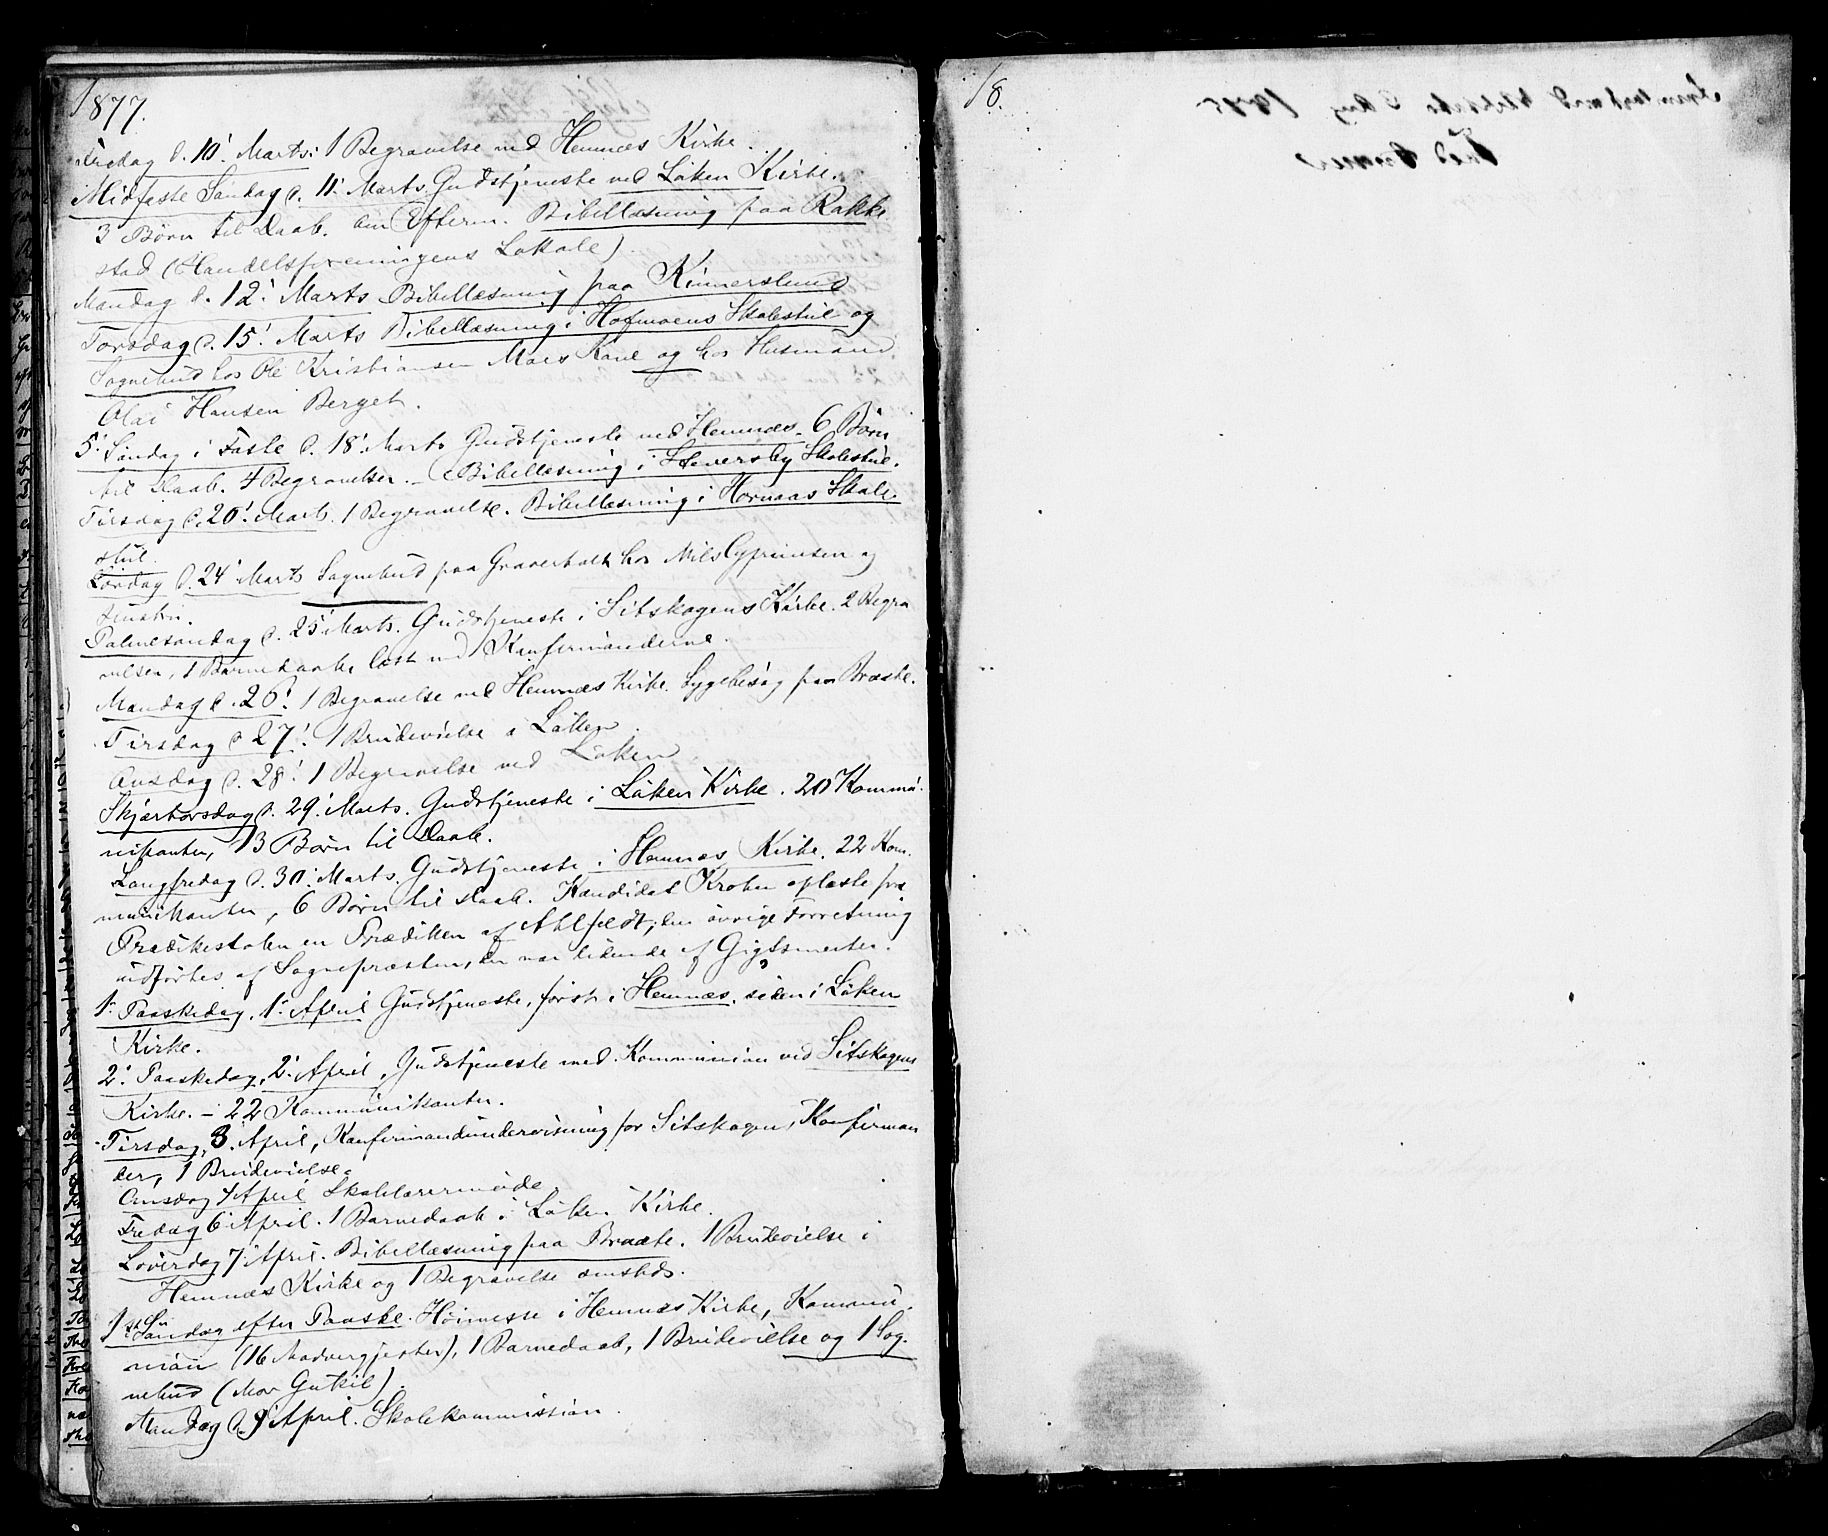 1877.
d. 10' Marts: 1 Begravelse ved Hemnæs Kirke.
Midfaste Søndag d. 11' Marts. Gudstjeneste ved Löken Kirke.
3 Børn til Daab. Om Efterm. Bibellæsning paa Rakke-
stad (Handelsforeningens Lokale).
Mandag d. 12' Marts Bibellæsning paa Kinnerslund
Torsdag d. 15' Marts Bibellæsning i Hofmoens Skolestue og
Sognebud hos Ole Kristiansen Moes Kone og hos Husmand
Olai Hansen Berget.
5' Søndag i Faste d. 18' Marts Gudstjeneste ved Hemnæs. 6 Børn
til Daab. 4 Begravelser. – Bibellæsning i Skolestue.
Tirsdag d. 20' Marts. 1 Begravelse. Bibellæsning i Hornaas Skole-
stue.
Lørdag d. 24' Marts Sognebud paa hos Nils og
Hustru.
Palmesøndag d. 25' Marts. Gudstjeneste i Sitskogens Kirke. 2 Begra-
velser, 1 Barnedaab, læst med Konfirmanderne.
Mandag d. 26' 1 Begravelse ved Hemnæs Kirke. Sygebesøg paa
Tirsdag d. 27' 1 Brudevielse i Löken.
Onsdag d. 28' 1 Begravelse ved Löken
Skjærtorsdag d. 29' Marts. Gudstjeneste i Löken Kirke. 20 Kommu-
nikanter, 13 Børn til Daab.
Langfredag d. 30' Marts. Gudstjeneste i Hemnæs Kirke. 22 Kom-
munikanter, 6 Børn til Daab. Kandidat oplæste fra
Prædikestolen en Prædiken af Ahlfeldt; den øvrige Forretning
udførtes af Sognepræsten, der var lidende af Gigtsmerter.
1' Paaskedag, 1' April Gudstjeneste, først i Hemnæs, siden i Löken
Kirke.
2' Paaskedag, 2' April, Gudstjeneste med Kommunion ved Sitskogens
Kirke. – 22 Kommunikanter.
Tirsdag, 3' April, Konfirmandundervisning for Sitskogens Konfirman
der, 1 Brudevielse.
Onsdag 4' April Skolelærermøde
Fredag 6' April. 1 Barnedaab i Löken Kirke.
Løverdag 7' April. Bibellæsning paa Braate. 1 Brudevielse i
Hemnæs Kirke og 1 Begravelse smsteds.
1ste Søndag efter Paaske. Høimesse i Hemnæs Kirke, Kommu-
nion (16 Nadvergjester), 1 Barnedaab, 1 Brudevielse og 1 Sog-
nebud (Mor Gutkil).
Mandag d. 9' April. Skolekommission.
18.